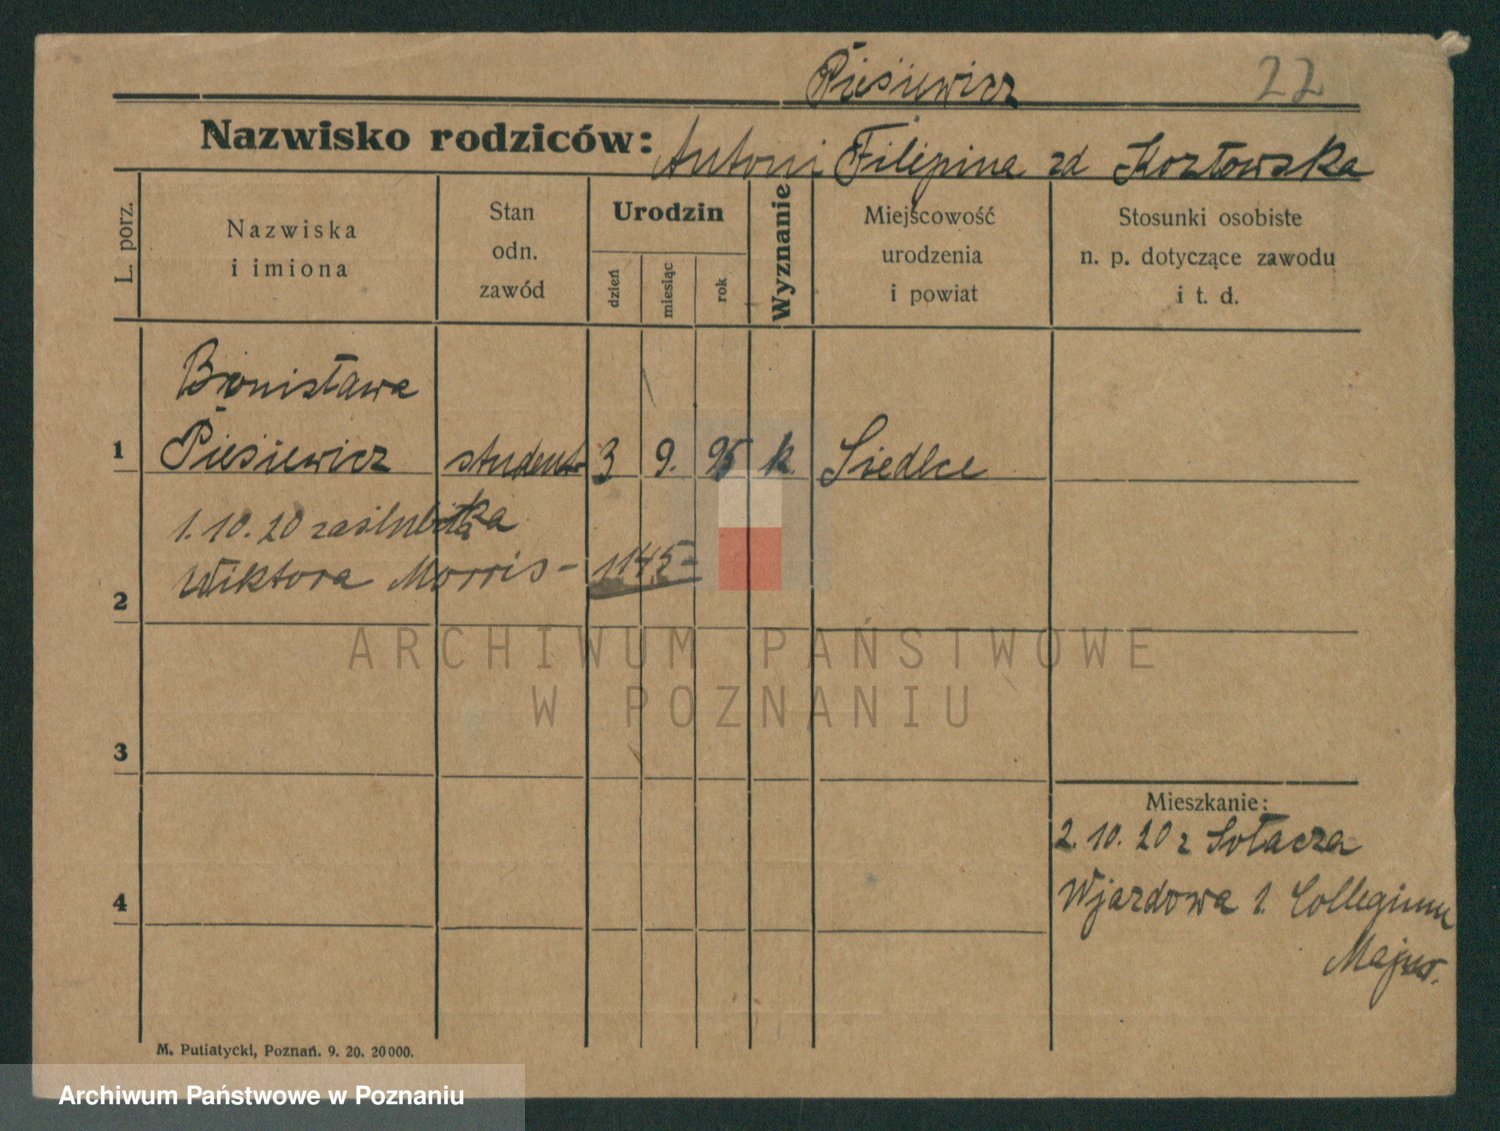 Piesiewicz 22
Nazwisko rodziców: Antoni Filipina zd Kozłowska
L. porz.
Nazwiska
i imiona
Stan
odn.
zawód
Urodzin
dzień
miesiąc
rok
Wyznanie
Miejscowość
urodzenia
i powiat
Stosunki osobiste
n. p. dotyczące zawodu
i t. d.
Bronisława
1 Piesiewicz student- 3 9. 95 k. Siedlce
ka
1.10.20 zaślubiła
Wiktora Morris- 1145-
2
ARCHIWUM PAŃSTWOWE
W POZNANIU
3
Mieszkanie:
2.10.20 z Sołacza
4
Wjazdowa 1. Collegium
Majus.
M. Putiatycki, Poznań. 9. 20. 20000.
Archiwum Państwowe w Poznaniu